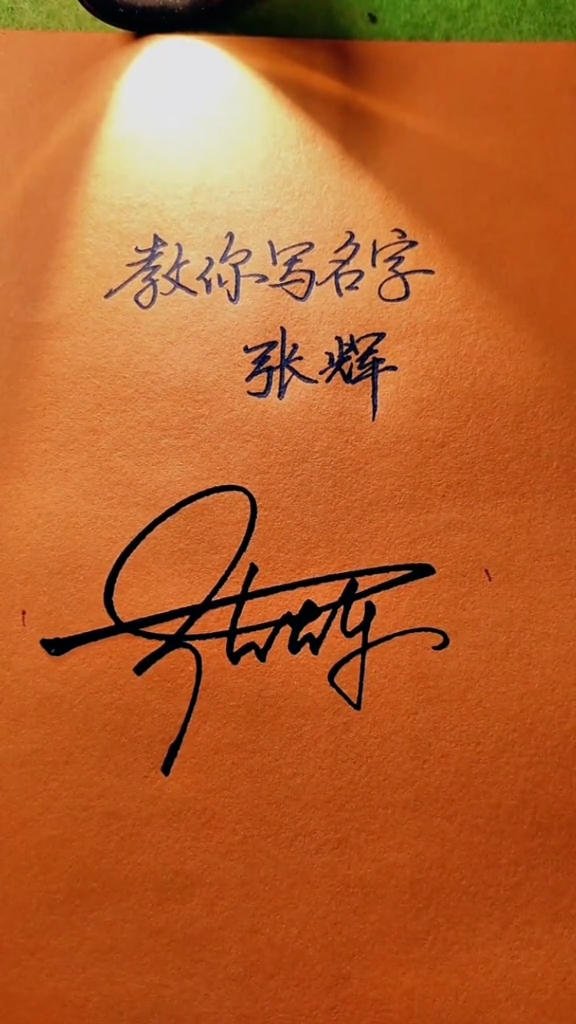 教你写名字
张辉
张辉